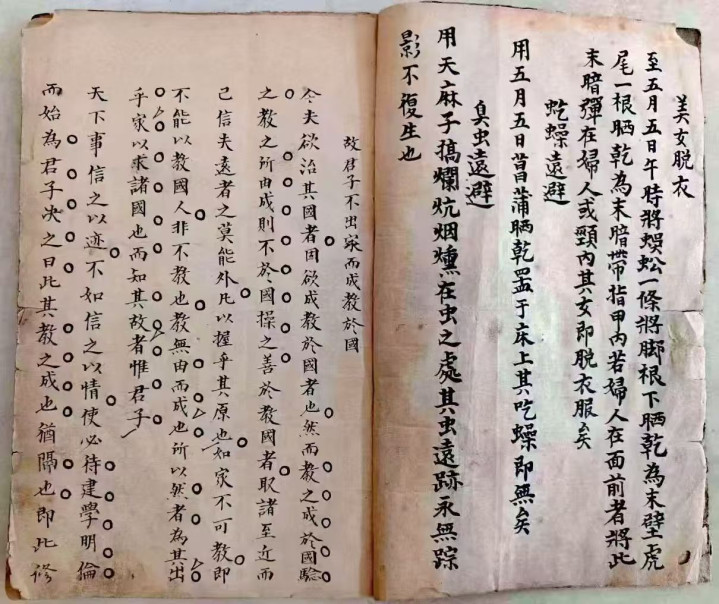 美女脱衣
至五月五日午時將蜈蚣一條將脚根下晒乾為末壁虎
尾一根晒乾為末暗帶指甲內若婦人在面前者將此
末暗彈在婦人或頸內其女即脱衣服矣
虼蟝遠避
用五月五日菖蒲晒乾置于床上其吃蟝即無矣
臭虫遠避
用天麻子搞爛炕烟燻在虫之處其虫遠跡永無踪
影不復生也
故君子不出家而成教於國
今夫欲治其國者因欲成教於國者也然而教之成於國驗
之教之所由成則不於國操之善於教國者取諸至近而
已信夫遠者之莫能外凡以握乎其原也如家不可教即
不能以教國人非不教也教無由而成也所以然者為其出
乎家以求諸國也而知其故者惟君子
天下事信之以迹不如信之以情使必待建學明倫
而始為君子決之曰此其教之成也猶隔也即此修